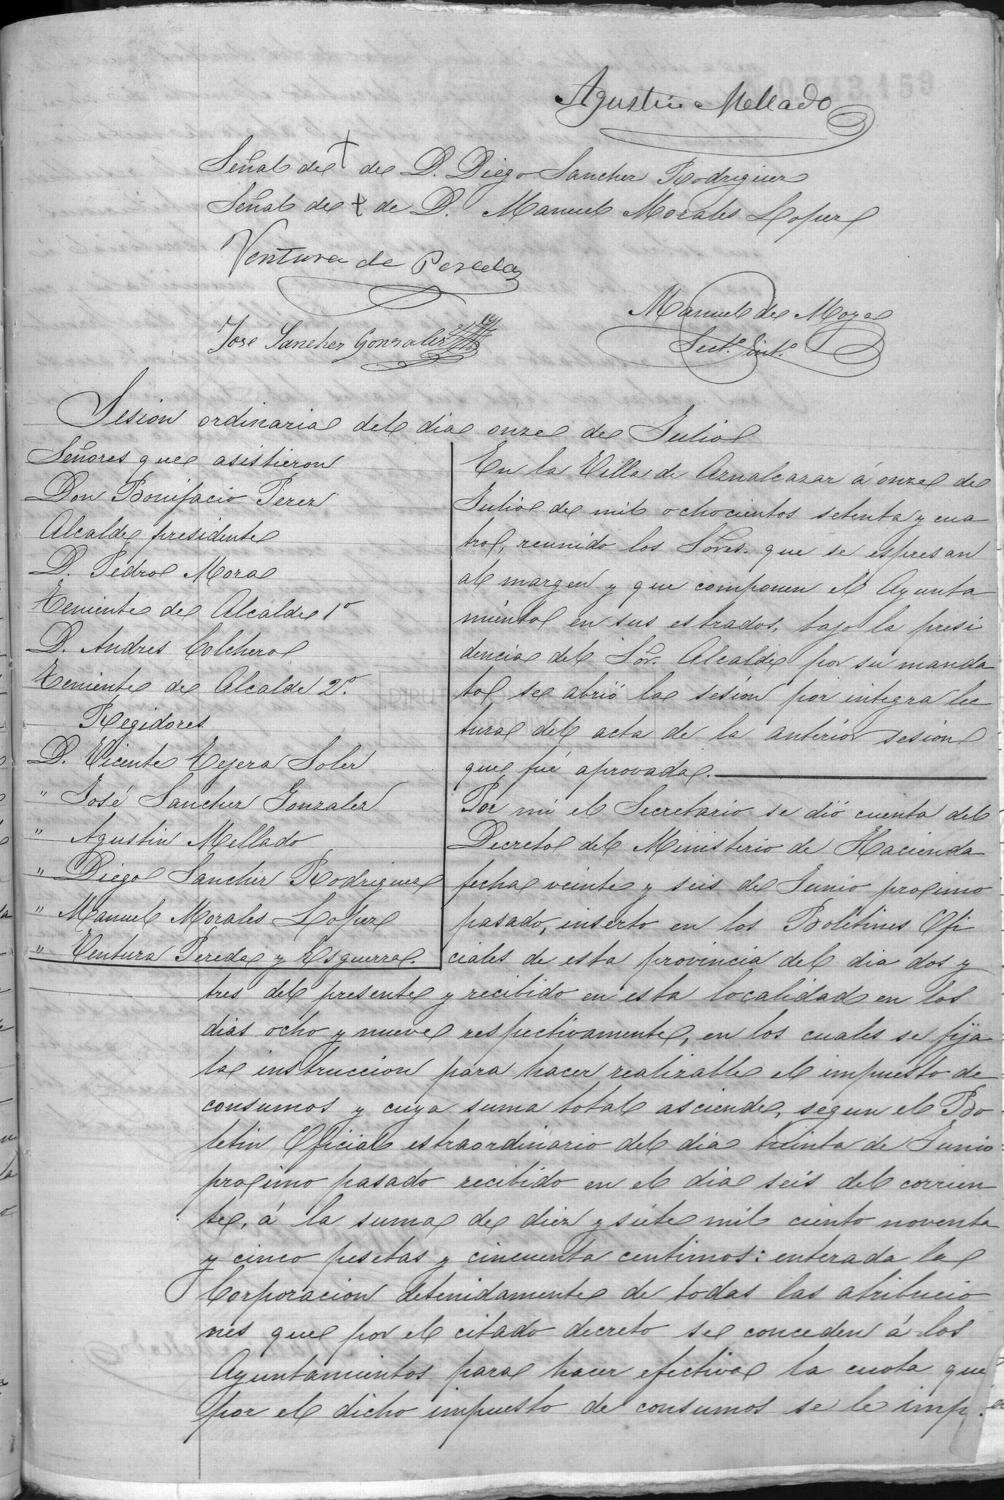 Agustin Mellado
Señal de † de D. Diego Sanchez Rodriguez
Señal de † de D. Manuel Morales Lopez
Ventura de Pereda
Manuel de Moya
Jose Sanchez Gonzalez
Sect.º Int.º
Sesion ordinaria del dia onze de Julio
Señores que asistieron
Don Bonifacio Perez
Alcalde presidente
D. Pedro Mora
Teniente de Alcalde 1º
D. Andres Colchero
Teniente de Alcalde 2º.
Regidores
D. Vicente Tejera Soler
" José Sanchez Gonzalez
" Agustin Mellado
" Diego Sanchez Rodriguez
" Manuel Morales Lopez
" Ventura Pereda y Esguerra
En la Villa de Aznalcazar á onze de
Julio de mil ochocientos setenta y cua
tro, reunido los Sores. que se espresan
al margen y que componen el Ayunta
miento en sus estrados, bajo la presi
dencia del Sor. Alcalde por su manda
to se abrió la sesión por integra lec
tura del acta de la anterior sesion
que fué aprovada.
Por mi el Secretario se dió cuenta del
Decreto del Ministerio de Hacienda
fecha veinte y seis de Junio proximo
pasado, inserto en los Boletines Ofi
ciales de esta provincia del dia dos y
tres del presente y recibido en esta localidad en los
dias ocho y nueve respectivamente, en los cuales se fija
la instruccion para hacer realizable el impuesto de
consumos y cuya suma total asciende, segun el Bo
letin Oficial estraordinario del dia treinta de Junio
proximo pasado recibido en el dia seis del corrien
te, á la suma de diez y siete mil ciento noventa
y cinco pesetas y cincuenta centimos: enterada la
Corporacion detenidamente de todas las atribucio
nes que por el citado decreto se conceden á los
Ayuntamientos para hacer efectiva la cuota que
por el dicho impuesto de consumos se le imp